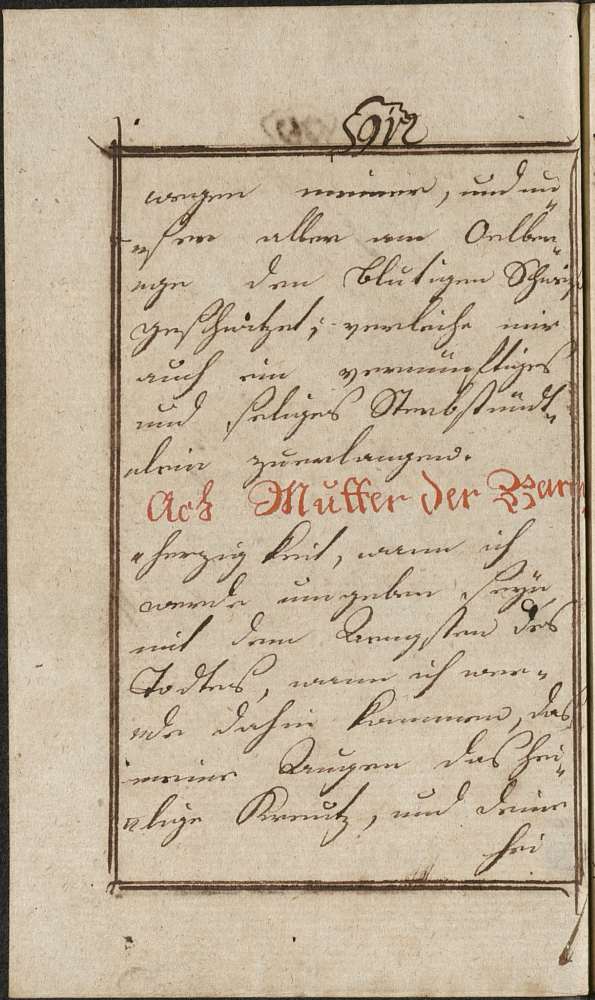 wegen meiner, und un
=ser aller am Oelber=
=ge den blutigen Schweiß
geschwitzet; verleihe mir
auch ein vernünftiges
und seliges Sterbstünd=
=lein zuerlangen.
Ach Mutter der Barm
=herzigkeit, wann ich
werde umgeben seyn
mit den Aengsten des
Todtes, wann ich wer=
=de dahin kommen, das
meine Augen das hei=
=lige Kreutz, und deine
hei